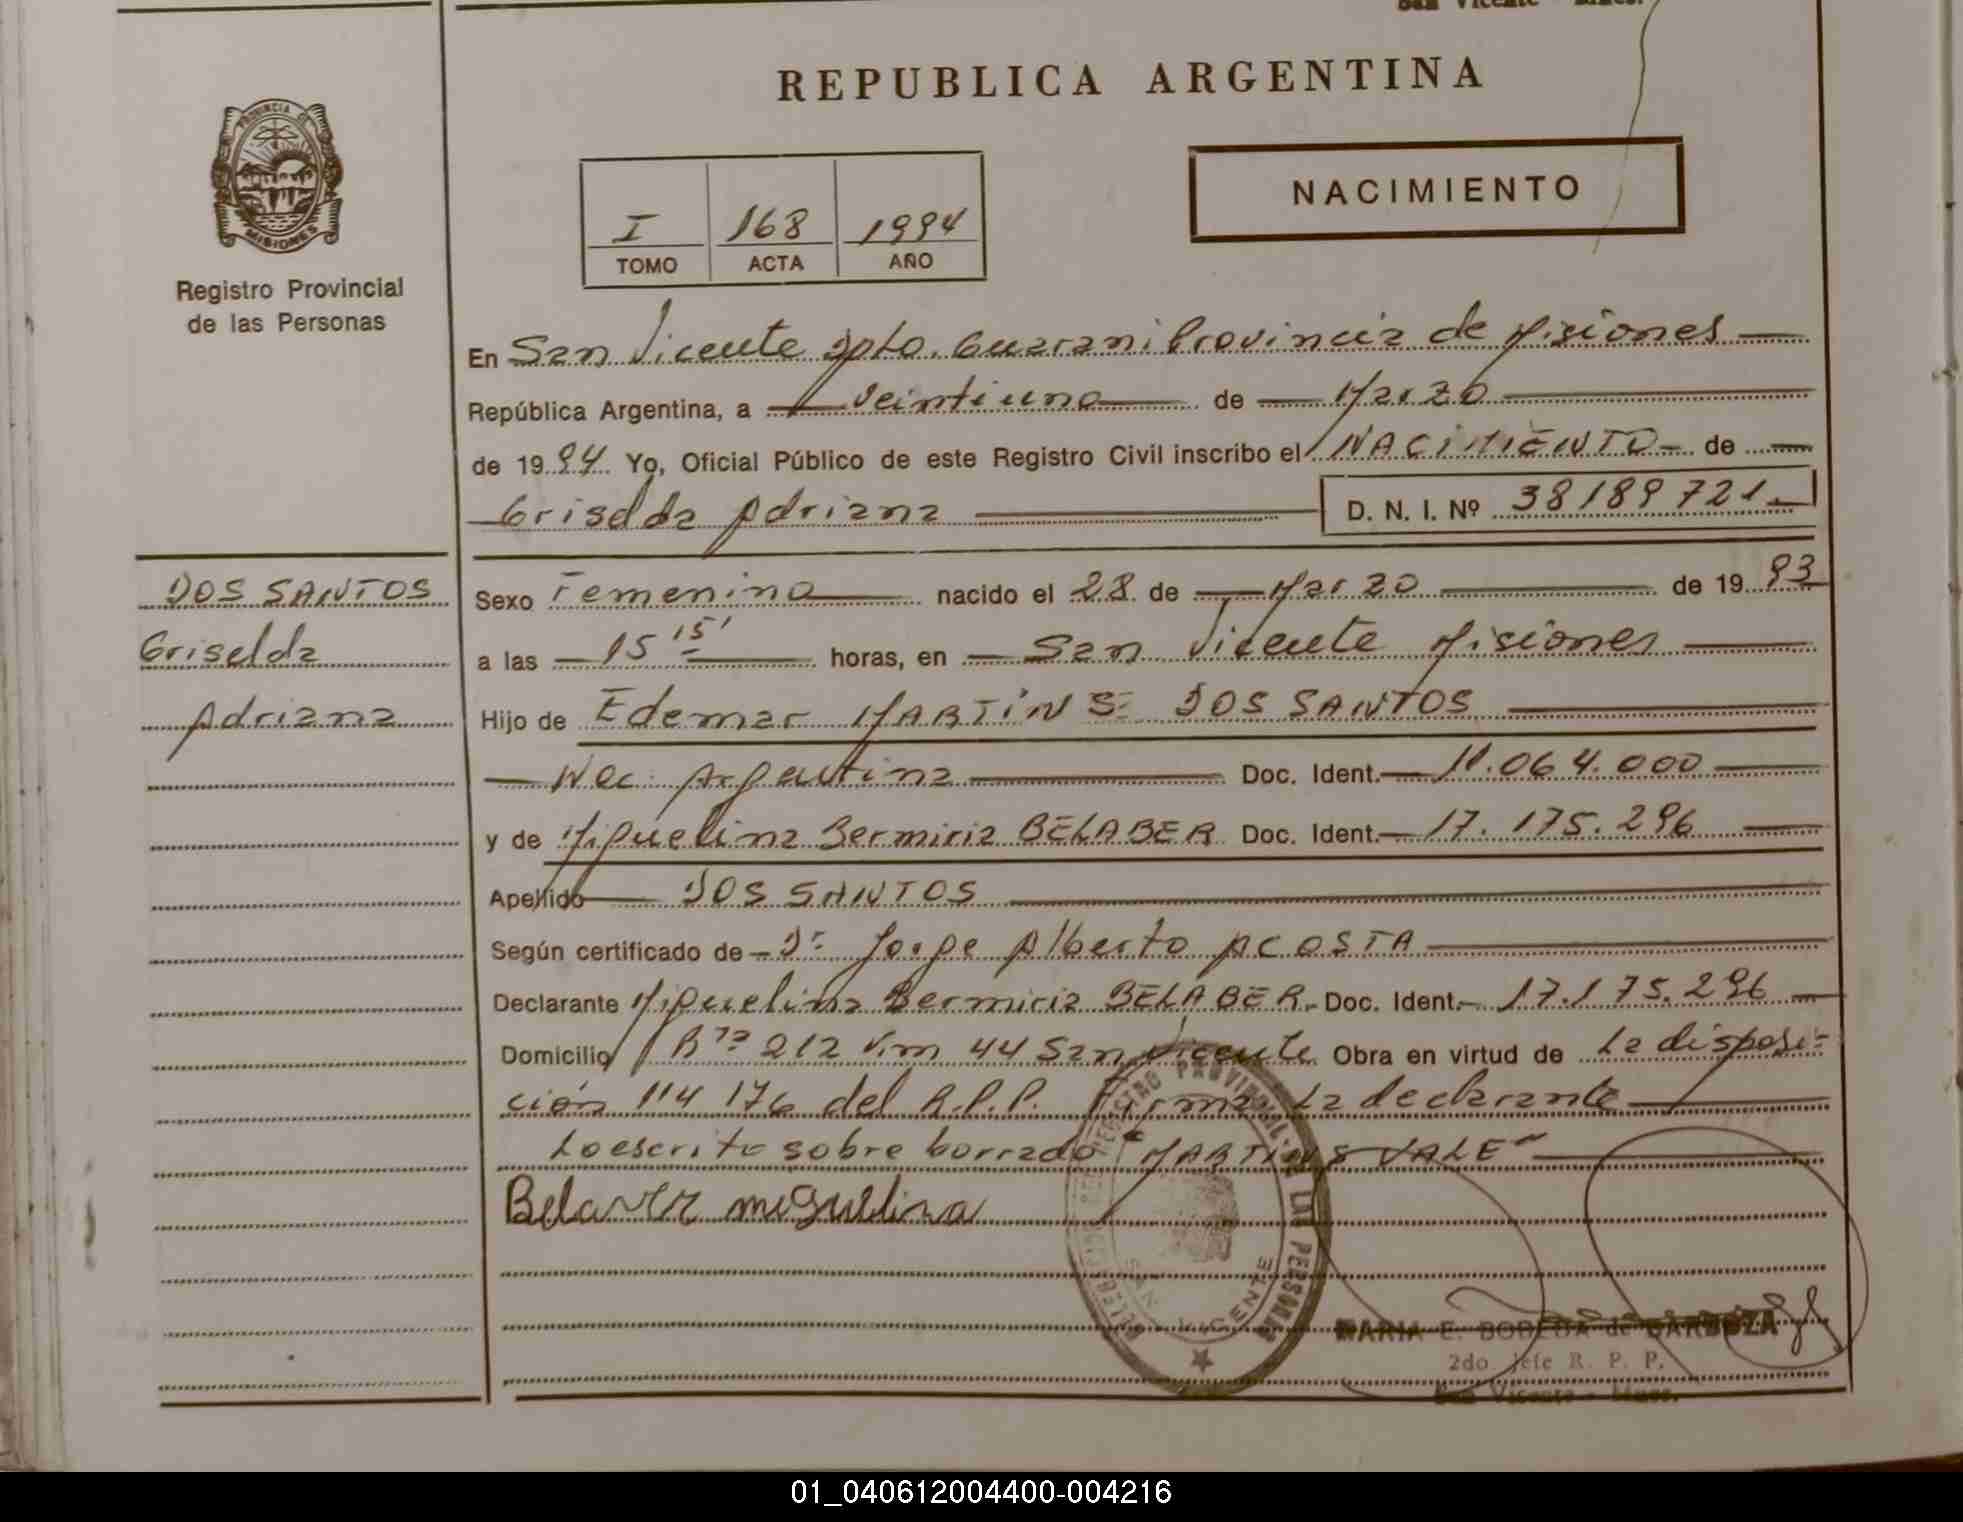 San Vicente - Mnes.
REPUBLICA ARGENTINA
PROVINCIA DE
MISIONES
Registro Provincial
de las Personas
I 168 1994
TOMO ACTA AÑO
NACIMIENTO
En San Vicente Dpto. Guarani Provincia de Misiones
República Argentina, a veintiuno de Marzo
de 1994 Yo, Oficial Público de este Registro Civil inscribo el NACIMIENTO de
Griselda Adriana D. N. I. Nº 38189721
DOS SANTOS
Griselda
Adriana
Sexo Femenino nacido el 28 de Marzo de 1993
a las 15 15' horas, en San Vicente Misiones
Hijo de Edemar MARTINS DOS SANTOS
Nac. Argentina Doc. Ident. 11.064.000
y de Miguelina Bermiria BELABER Doc. Ident. 17.175.296
Apellido DOS SANTOS
Según certificado de Dr Jorge Alberto ACOSTA
Declarante Miguelina Bermiria BELABER Doc. Ident. 17.175.296
Domicilio 212 Km 44 San Vicente Obra en virtud de la disposi-
ción 114 176 del R.P.P. Firma la declarante
Lo escrito sobre borrado "MARTINS VALE"
Belaver miguelina
REGISTRO PROVINCIAL DE LAS PERSONAS
SAN VICENTE
MARIA E. BOBEDA de BARBOZA
2do Jefe R. P. P.
San Vicente - Mnes.
01_040612004400-004216